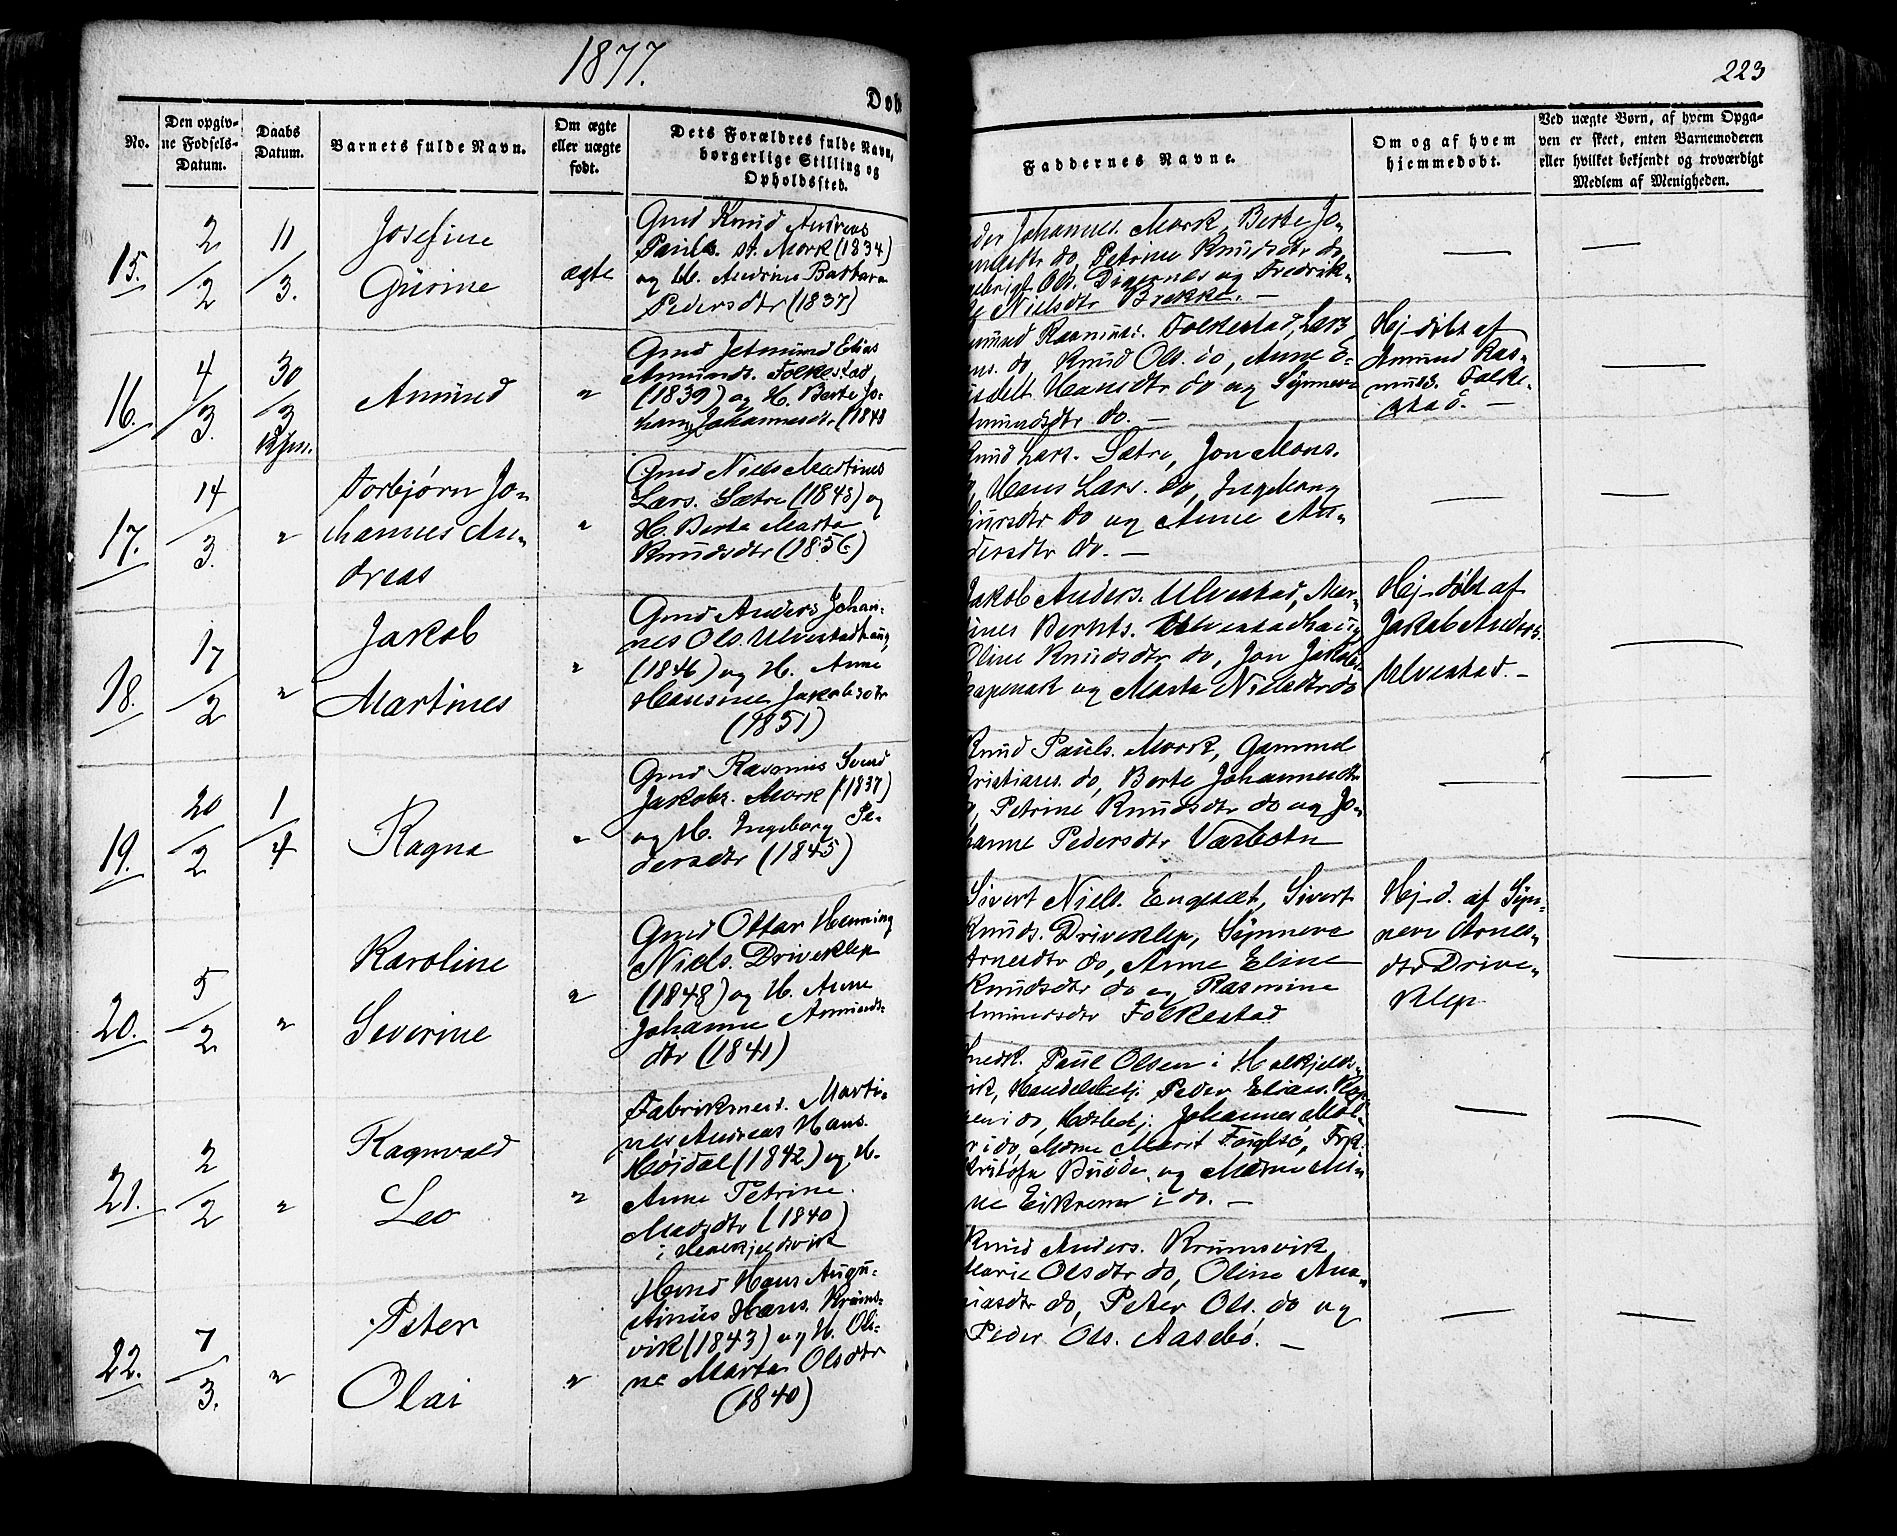 1877.
223
Døb
No.
Den opgiv-
ne Fødsels-
Datum.
Daabs
Datum.
Barnets fulde Navn.
Om ægte
eller uægte
født.
Dets Forældres fulde Navn,
borgerlige Stilling og
Opholdssted.
Faddernes Navne.
Om og af hvem
hjemmedøbt.
Ved uægte Børn, af hvem Opga-
ven er skeet, enten Barnemoderen
eller hvilket bekjendt og troværdigt
Medlem af Menigheden.
15.
2/2
11/3.
Josefine
Gurine
ægte
Gmd Knud Andreas
Pauls. st. Mork (1834)
og H. Andrine Barbara
Pedersdtr (1837)
Johannes. Mork, Berte Jo-
do, Petrine Knudsdtr do,
Ols. Digernes og Fredrik-
Nielsdtr Brekke. —
16.
4/3.
30/3
Kjrn.
Amund
"
Gmd Jetmund Elias
Amunds. Folkestad
(1839) og H. Berte Jo-
hanne Johannesdtr (1848
Rasmus. Folkestad, Lars
do, Knud Ols. do, Anne E-
Hansdtr do og Synneve
do. —
Hj-døbt af
Amund Ras-
mus. Folke-
stad. —
17.
14/3.
"
Torbjørn Jo-
hannes An-
dreas
"
Gmd Niels Martinus
Lars. Sætre (1848) og
H. Berte Marta
Knudsdtr (1856)
Knud Lars. Sætre, Jon Mons.
Hans Lars. do, Ingeborg
do og Anne An-
dersdtr do. —
18.
17/2
"
Jakob
Martines
"
Gmd Anders Johan-
nes Ols. Ulvestadhaug,
(1846) og H. Anne
Hansine Jakobsdtr
(1851)
Jakob Anders. Ulvestad, Mar-
tines Bernts. Ulvestadhaug
Oline Knudsdtr do, Jon Jakobs.
og Marta Nielsdtr do
Hj-døbt af
Jakob Anders.
Ulvestad. —
19.
20/2
1/4
Ragna
"
Gmd Rasmus Svend
Jakobs. Mork (1837)
og H. Ingeborg Pe-
dersdtr (1845)
Knud Pauls. Mork, Gammel
Kristians. do, Berte Johannesdtr
Petrine Knudsdtr do og Jo-
hanne Pedersdtr Vasbotn
20.
5/2
"
Karoline
Severine
"
Gmd Ottar Henning
Niels. Driveklep
(1848) og H. Anne
Johanne Amunds-
dtr (1841)
Sivert Niels. Engeset, Sivert
Knuds. Driveklep, Synneve
Arnesdtr do, Anne Eline
Knudsdtr do og Rasmine
Amundsdtr Folkestad
Hj-d. af Syn-
neve Arnes-
dtr Drive-
klep
21.
2/2
"
Ragnvald
Leo
"
Fabrikmest. Marti-
nes Andreas Hans.
Høidal (1842) og H.
Anne Petrine
Madsdtr (1840)
i Helkjeldsvik
Snedk. Paul Olsen i Helkjelds-
vik, Handelsbetj. Peder Elias.
i do, Johannes
i do, Madme Marit Fuglsø, Frk.
og Madme
Eikrem i do. —
22.
7/3.
"
Peter
Olai
"
Hmd Hans Augu-
stinus Hans. Krums-
vik (1843) og H. Oli-
ne Marta Olsdtr
(1840)
Knud Anders. Krumsvik
Marie Olsdtr do, Oline Ana-
niasdtr do, Peter Ols. do og
Peder Ols. Aasebø. —